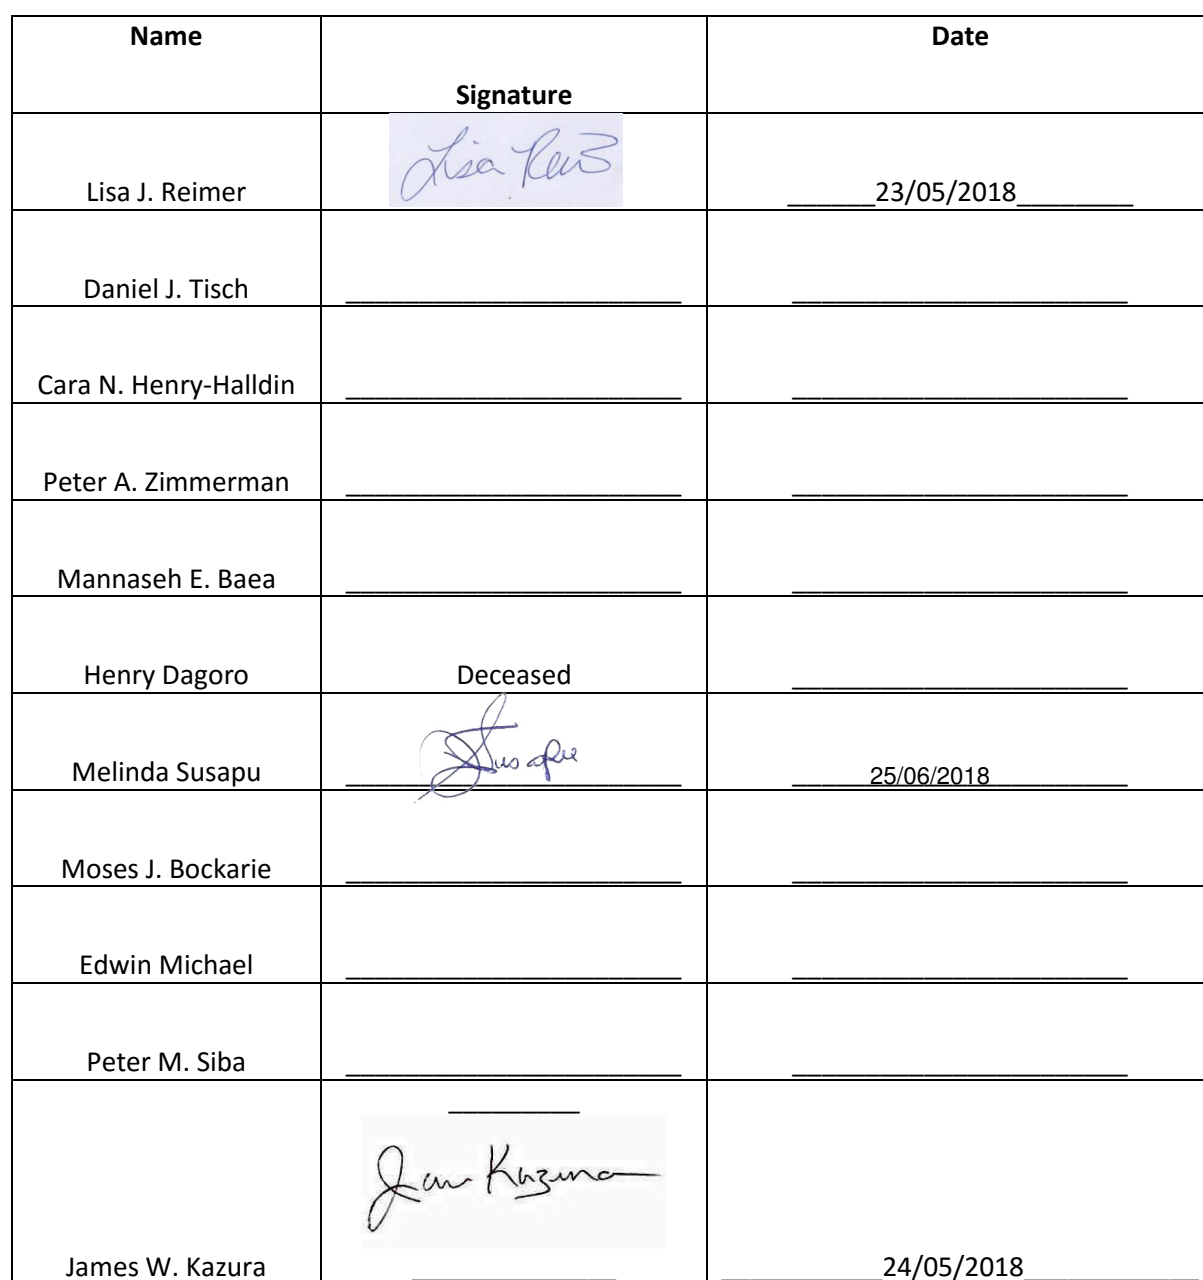 Name
Date
Signature
Lisa Rei
Lisa J. Reimer
______23/05/2018________
Daniel J. Tisch
Cara N. Henry-Halldin
Peter A. Zimmerman
Mannaseh E. Baea
Henry Dagoro
Deceased
Susapu
Melinda Susapu
25/06/2018
Moses J. Bockarie
Edwin Michael
Peter M. Siba
Jam Kazura
James W. Kazura
24/05/2018